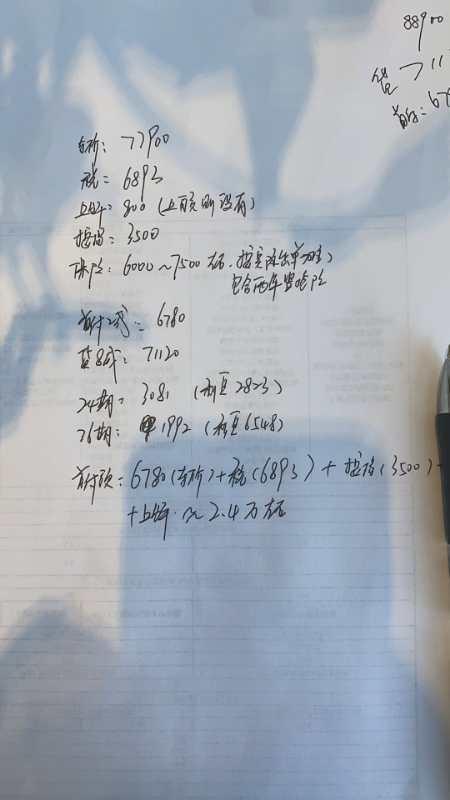 88900
贷 711
首付: 67
车价: 77900
税: 6893
上牌: 800 (上质则没有)
担保: 3500
保险: 6000~7500左右, 按实际出单为主,
包含两年盗抢险
首付2成: 6780
贷8成: 71120
24期: 3081 (利息2823)
36期: 1992 (利息6548)
首付款: 6780(车价)+税(6893)+担保(3500)
+上牌. ≈ 2.4万左右